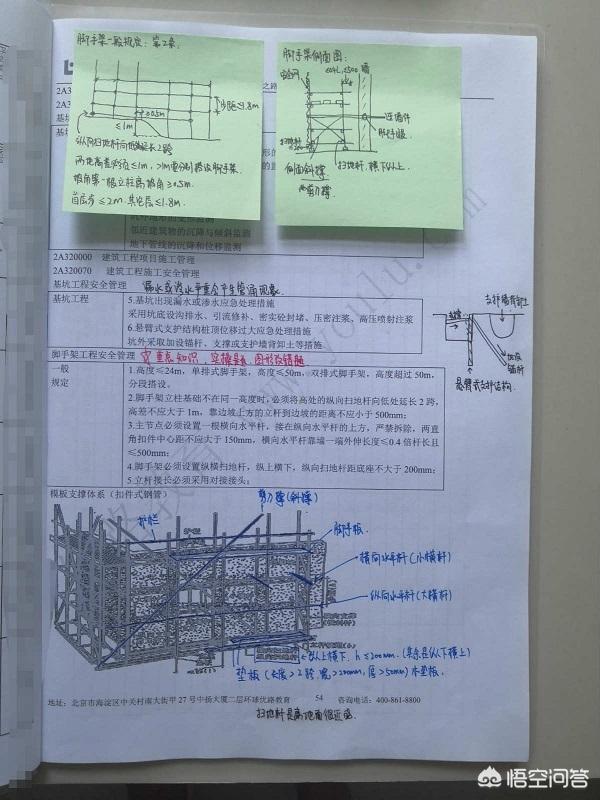 脚手架一般规定：第2条.
步距≤1.8m
≥0.5m
≤1m
纵向扫地杆向低处延长2跨
两地高差必须≤1m,>1m重分别搭设脚手架.
坡角第一根立柱离坡肩≥0.5m.
首层步≤2m.其它层≤1.8m.
脚手架侧面图:
≤0.4L,≤500
墙
安全网
连墙件
脚手板.
扫地杆.横下纵上.
侧面斜撑
两剪刀撑.
2A3
2A3
基坑
邻近建筑物的沉降与倾斜监测
地下管线的沉降和位移监测
2A320000 建筑工程项目施工管理
2A320070 建筑工程施工安全管理
基坑工程安全管理
基坑工程
5.基坑出现漏水或渗水应急处理措施
采用坑底设沟排水、引流修补、密实砼封堵、压密注浆、高压喷射注浆
6.悬臂式支护结构桩顶位移过大应急处理措施
坑外采取加设锚杆、支撑或支护墙背卸土等措施
支护墙背卸土
支撑
锚杆
悬臂式支护结构.
脚手架工程安全管理
重点知识，实操题, 图形改错题
一般
规定
1.高度≤24m，单排式脚手架，高度≤50m，双排式脚手架，高度超过 50m，
分段搭设。
2.脚手架立柱基础不在同一高度时，必须将高处的纵向扫地杆向低处延长 2 跨，
高差不应大于 1m，靠边坡上方的立杆到边坡的距离不应小于 500mm；
3.主节点必须设置一根横向水平杆，接在纵向水平杆的上方，严禁拆除，两直
角扣件中心距不应大于 150mm，横向水平杆靠墙一端外伸长度≤0.4 倍杆长且
≤500mm；
4.脚手架必须设置纵横扫地杆，纵上横下，纵向扫地杆距底座不大于 200mm；
5.立杆接长必须采用对接接头；
模板支撑体系（扣件式钢管）
剪刀撑(斜撑)
护栏
脚手板
横向水平杆(小横杆)
纵向水平杆(大横杆)
纵上横下. h≤200mm. (其余是纵下横上)
垫板(长度>2跨,宽>200mm,厚>50mm)木垫板.
地址：北京市海淀区中关村南大街甲 27 号中扬大厦二层环球优路教育 54 咨询电话：400-861-8800
扫地杆是离地面很近感.
www.youlu.com
悟空问答